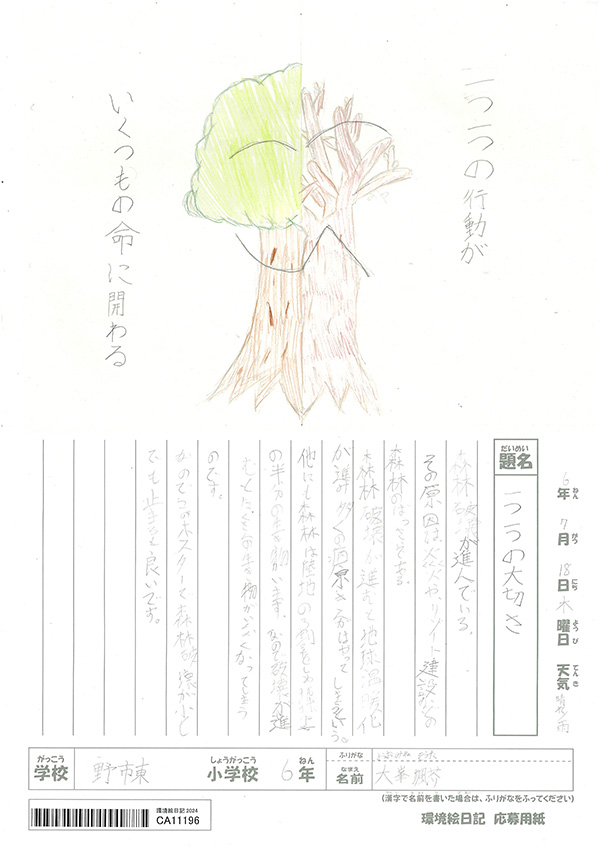 一つ一つの行動が
いくつもの命に開わる
6年 7月 18日 木曜日 天気 晴や雨
ねん がつ にち ようび てんき
だいめい
題名
一つ一つの大切さ
森林破壊が進んでいる。
その原因は火災や、リゾイト建設などの
森林のばっさいである。
森林破壊が進むと地球温暖化
が進み多くの
他にも森林は陸地の
の半分の生き物がいます。なので破壊が進
むとたくさんの生き物がいなくなってしまう
のです。
なのでこのポスターで森林破壊が少し
でも止まると良いです。
がっこう
学校
野市東
しょうがっこう
小学校
6年
ねん
ふりがな
なまえ
名前
大峯
(漢字で名前を書いた場合は、ふりがなをふってください)
環境絵日記2024
CA11196
環境絵日記 応募用紙